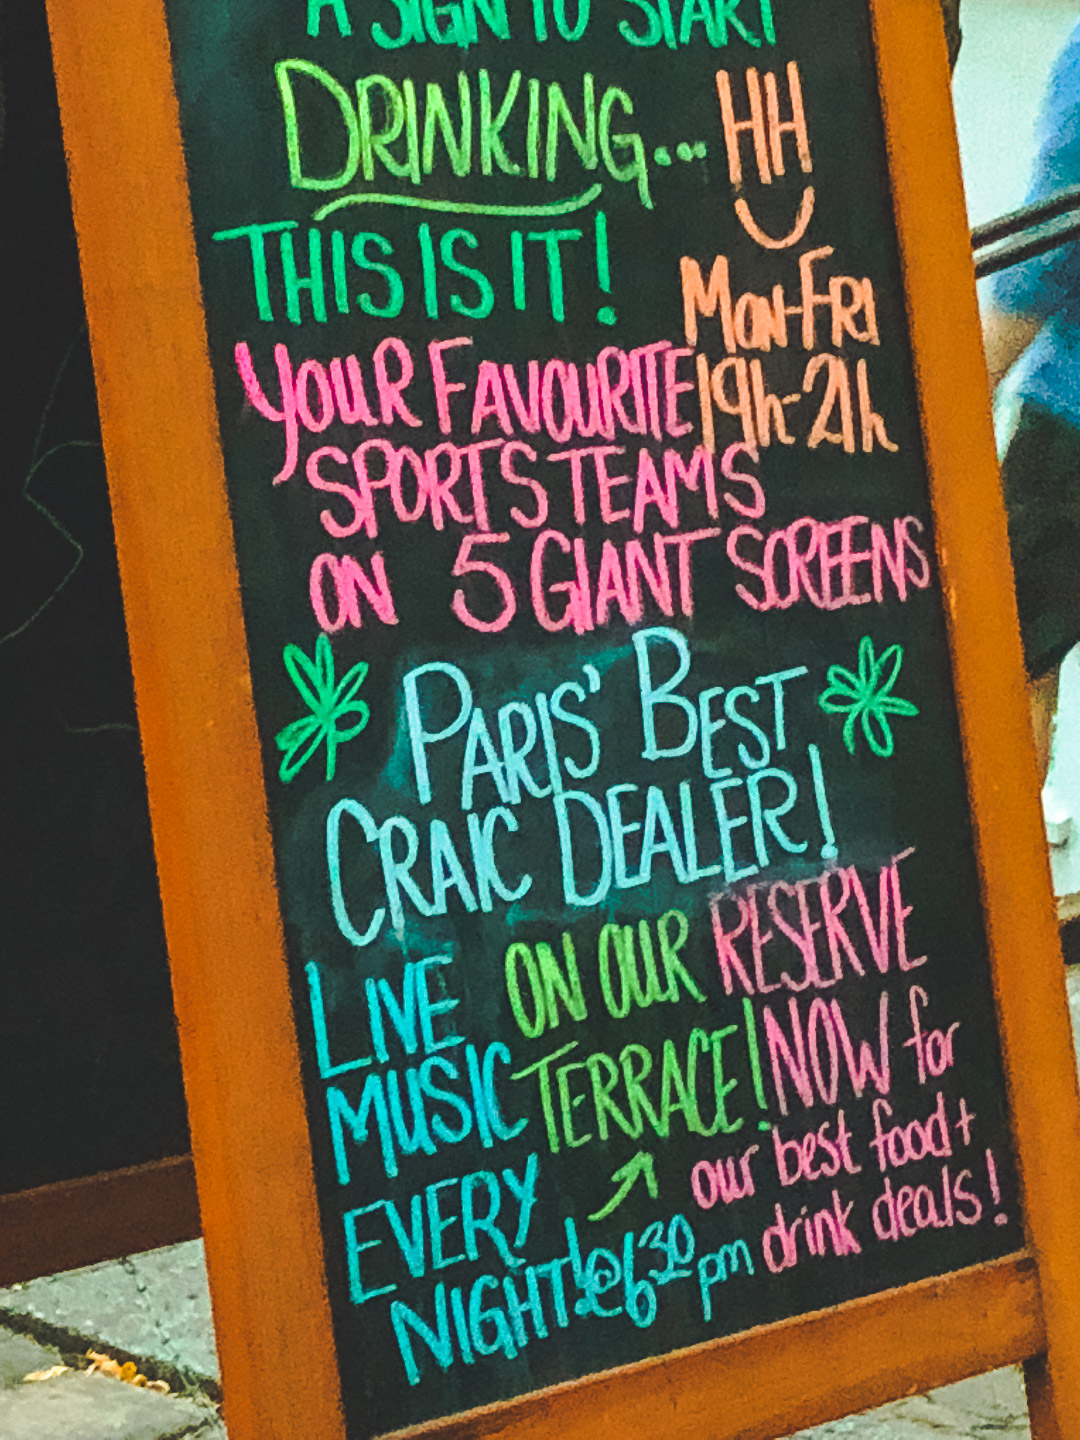 A SIGN TO START
DRINKING...
THIS IS IT!
HH
MON-FRI
19h-21h
YOUR FAVOURITE
SPORTS TEAMS
ON 5 GIANT SCREENS
PARIS' BEST
CRAIC DEALER!
LIVE
MUSIC
EVERY
NIGHT! @630pm
ON OUR
TERRACE!
RESERVE
NOW for
our best food +
drink deals!